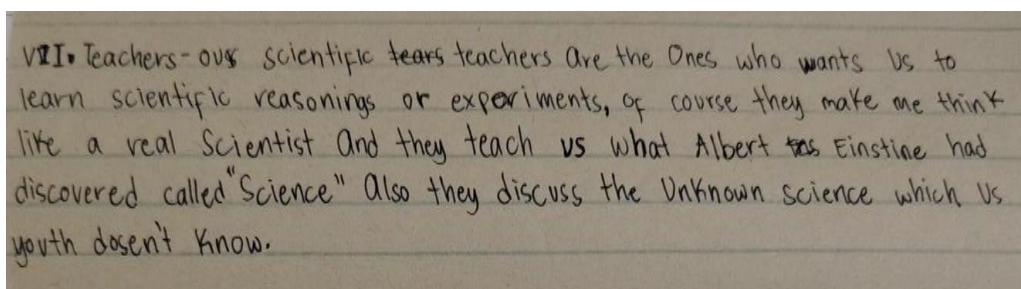 VII. Teachers - our scientific tears teachers are the Ones who wants Us to
learn scientific reasonings or experiments, of course they make me think
like a real Scientist and they teach us what Albert Einstine had
discovered called "Science" also they discuss the Unknown science which Us
youth dosen't know.